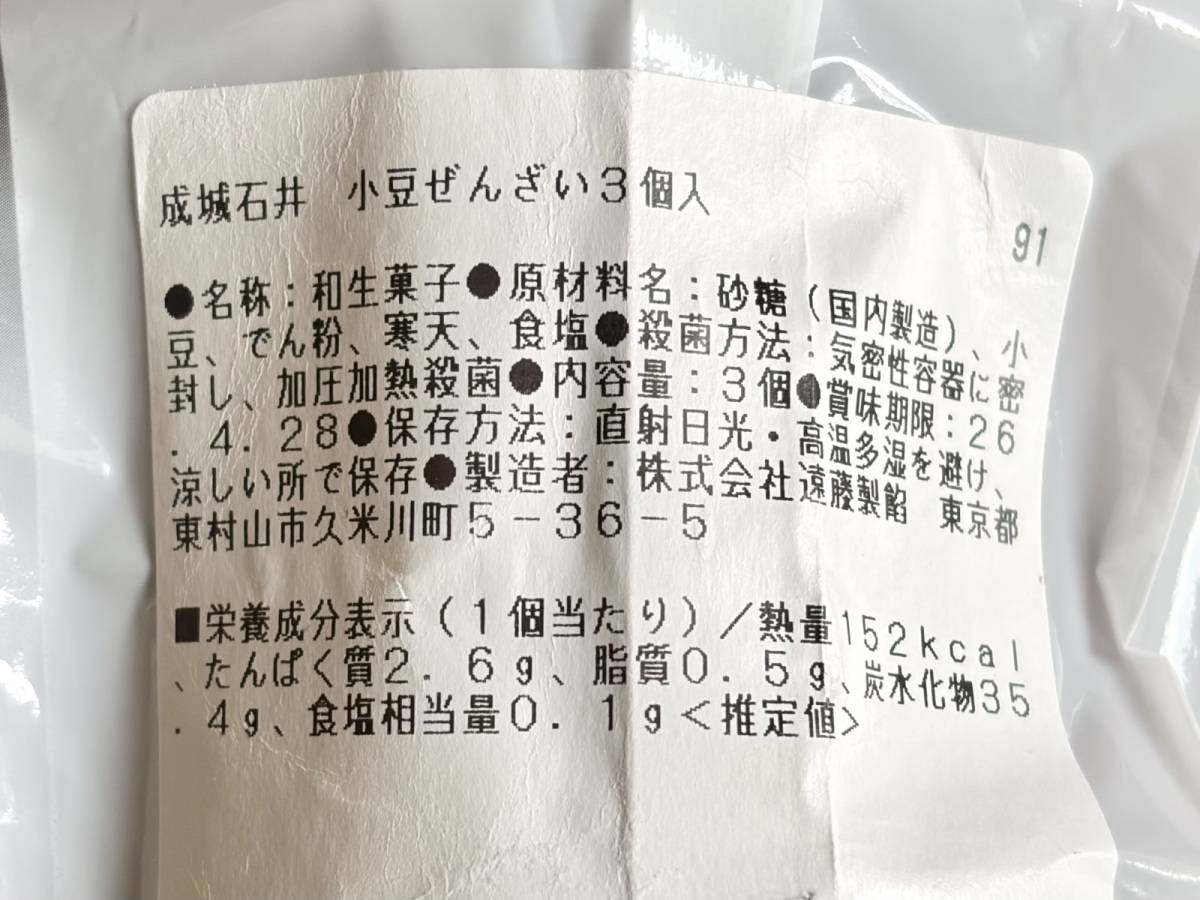 成城石井　小豆ぜんざい3個入
91
●名称:和生菓子●原材料名:砂糖(国内製造)、小
豆、でん粉、寒天、食塩●殺菌方法:気密性容器に密
封し、加圧加熱殺菌●内容量:3個●賞味期限:26
.4.28●保存方法:直射日光・高温多湿を避け、
涼しい所で保存●製造者:株式会社遠藤製餡　東京都
東村山市久米川町5-36-5
■栄養成分表示(1個当たり)/熱量152kcal
、たんぱく質2.6g、脂質0.5g、炭水化物35
.4g、食塩相当量0.1g<推定値>